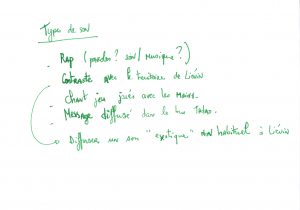 Types de son
- Rap (paroles? son / musique?)
- Contraste avec le territoire de Liévin
- Chant jeu joués avec les mains.
- Message diffusé dans le bus Tadao.
- Diffuser un son "exotique" non habituel à Liévin